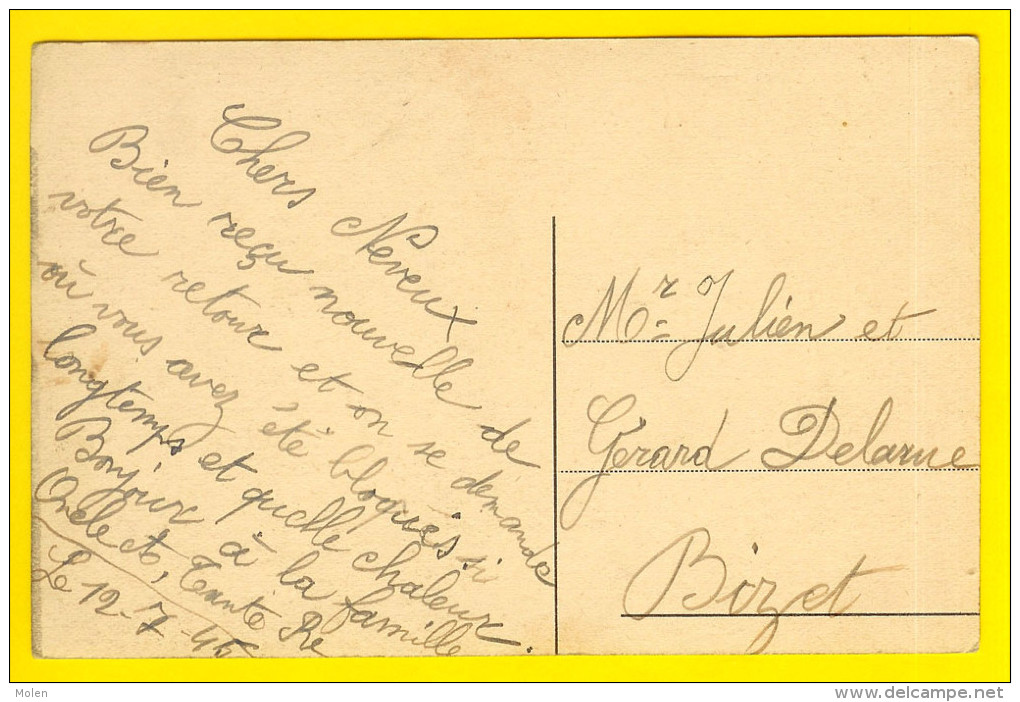 Chers Neveux
Bien reçu nouvelle de
votre retour et on se demande
où vous avez été bloqués si
longtemps et quelle chaleur.
Bonjour à la famille
Oncle et Tante Re
Le 12-7-45
Mr Julien et
Gérard Delarue
Bizet
Molen
www.delcampe.net